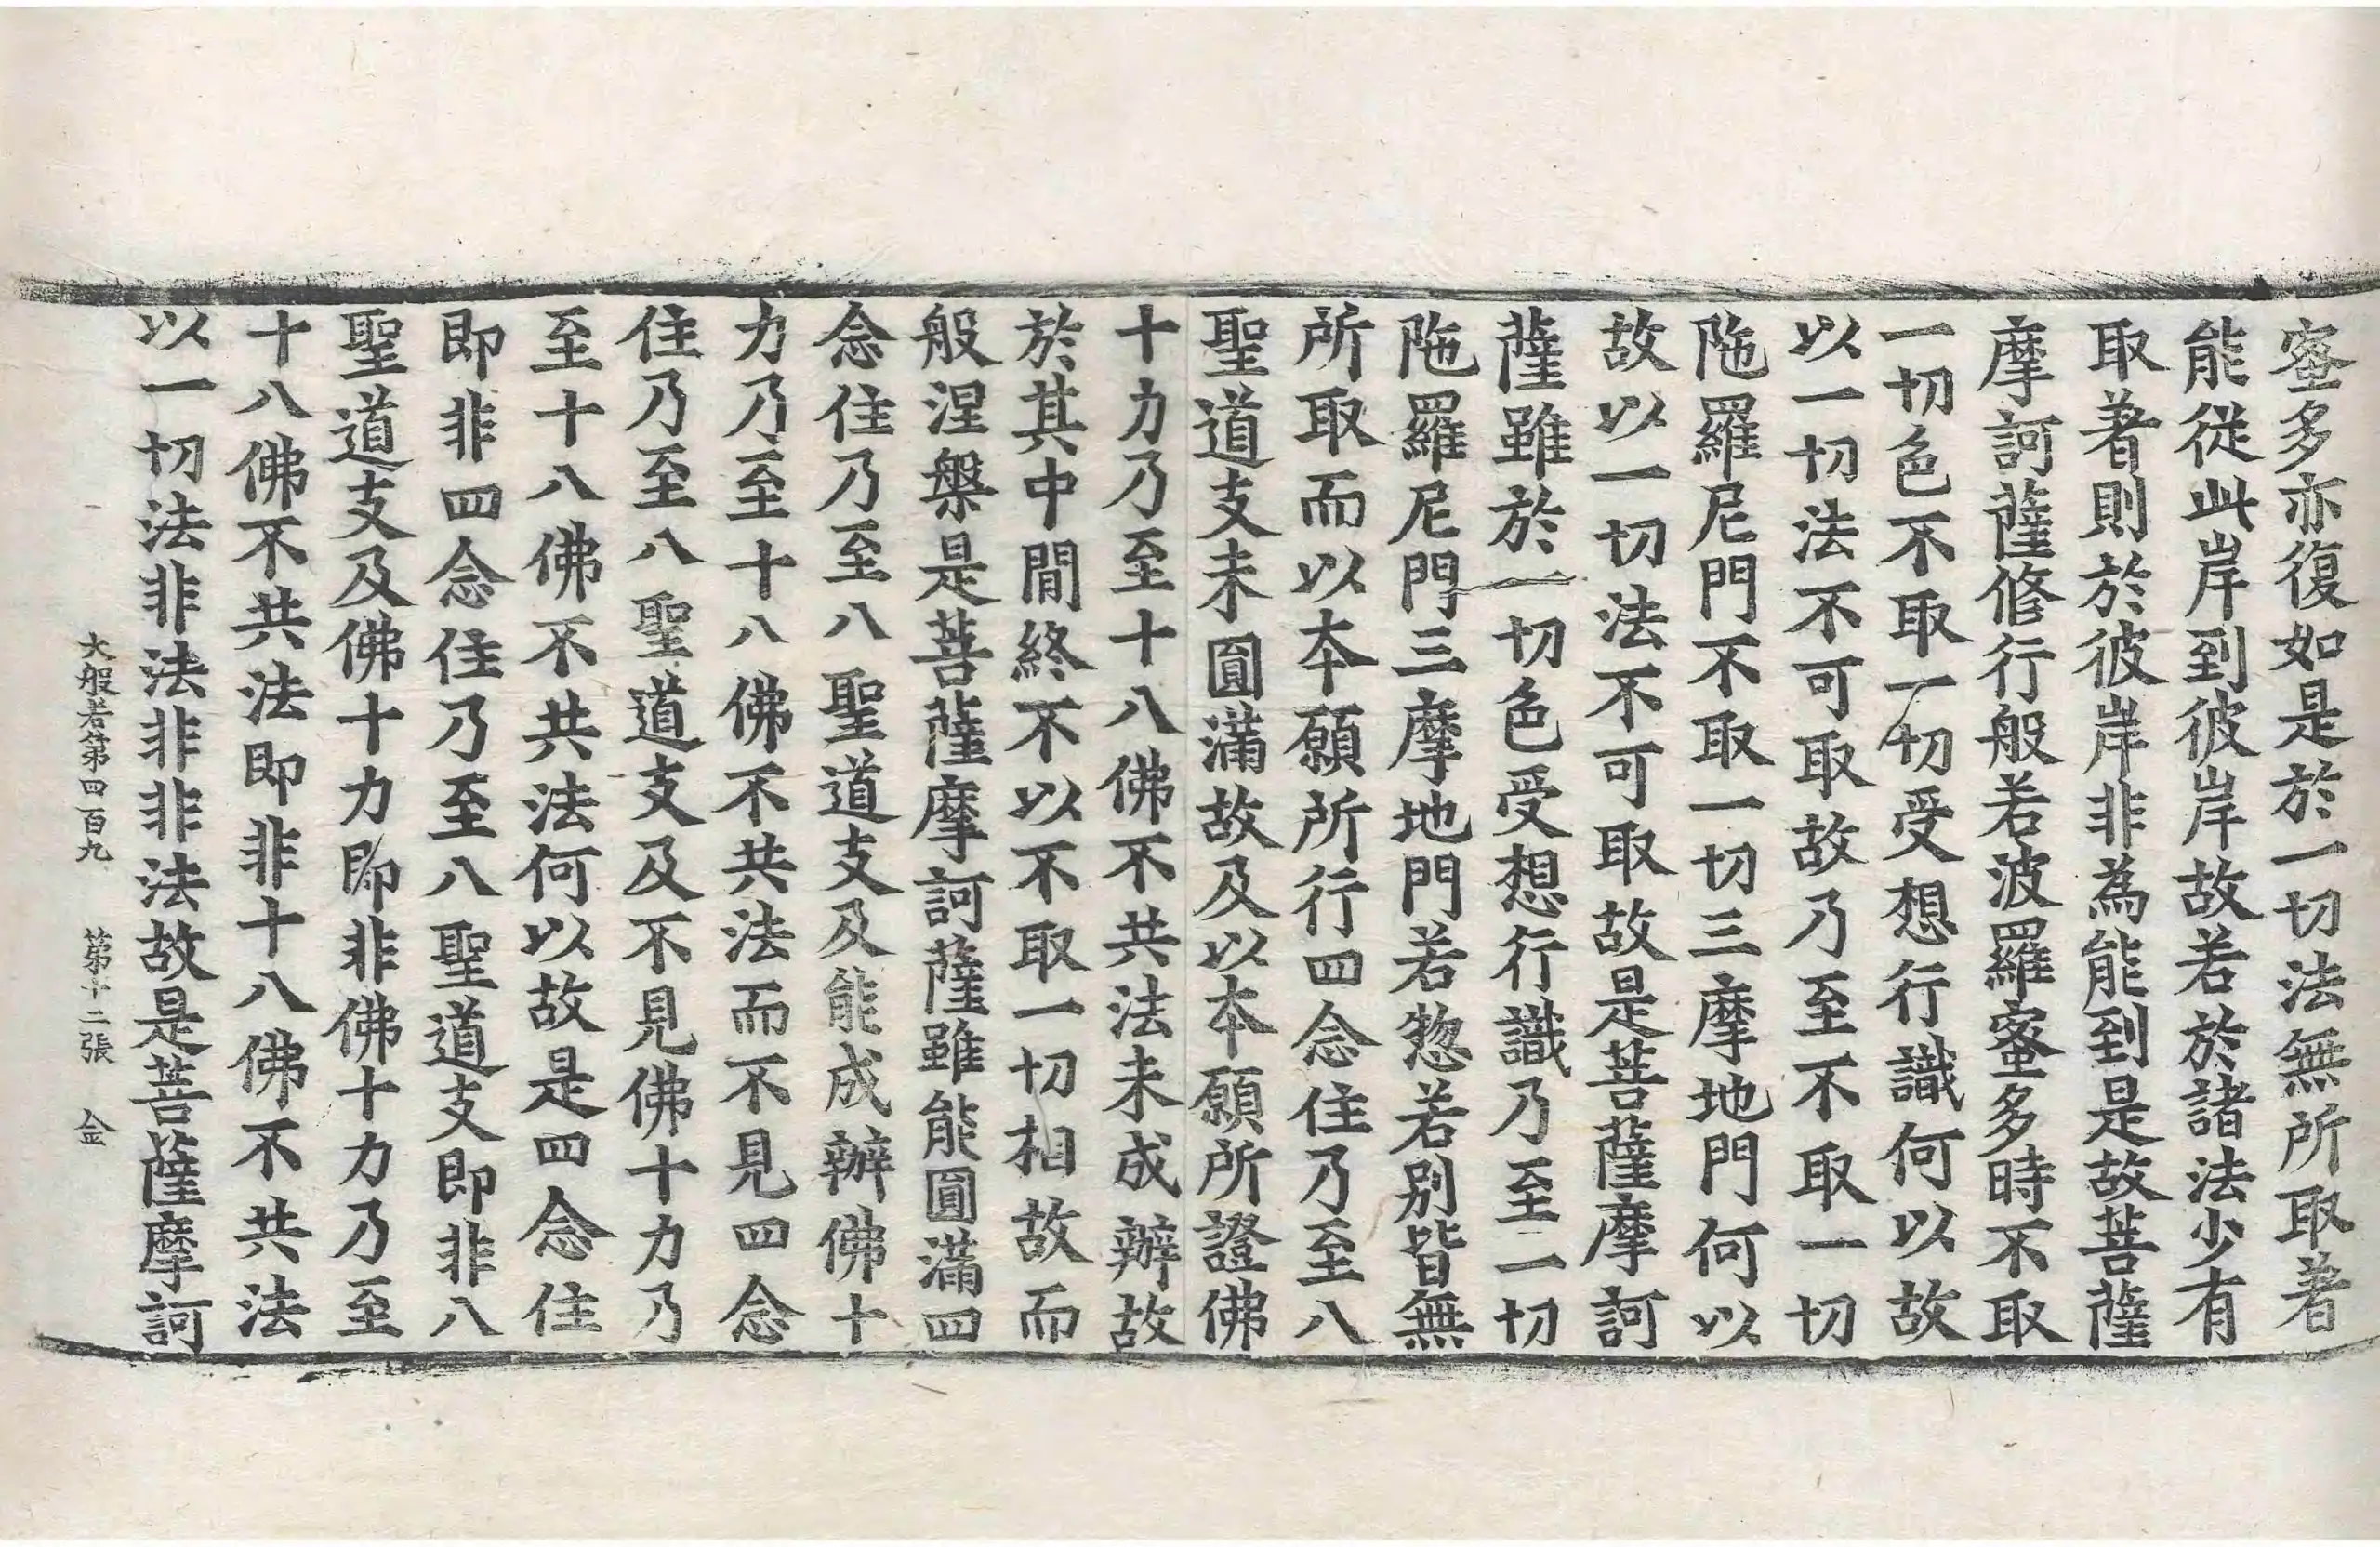 蜜多亦復如是於一切法無所取著
能從此岸到彼岸故若於諸法少有
取著則於彼岸非為能到是故菩薩
摩訶薩修行般若波羅蜜多時不取
一切色不取一切受想行識何以故
以一切法不可取故乃至不取一切
陁羅尼門不取一切三摩地門何以
故以一切法不可取故是菩薩摩訶
薩雖於一切色受想行識乃至一切
陁羅尼門三摩地門若惣若別皆無
所取而以本願所行四念住乃至八
聖道支未圓滿故及以本願所證佛
十力乃至十八佛不共法未成辦故
於其中間終不以不取一切相故而
般涅槃是菩薩摩訶薩雖能圓滿四
念住乃至八聖道支及能成辦佛十
力乃至十八佛不共法而不見四念
住乃至八聖道支及不見佛十力乃
至十八佛不共法何以故是四念住
即非四念住乃至八聖道支即非八
聖道支及佛十力即非佛十力乃至
十八佛不共法即非十八佛不共法
以一切法非法非非法故是菩薩摩訶
大般若第四百九 第十二張 金